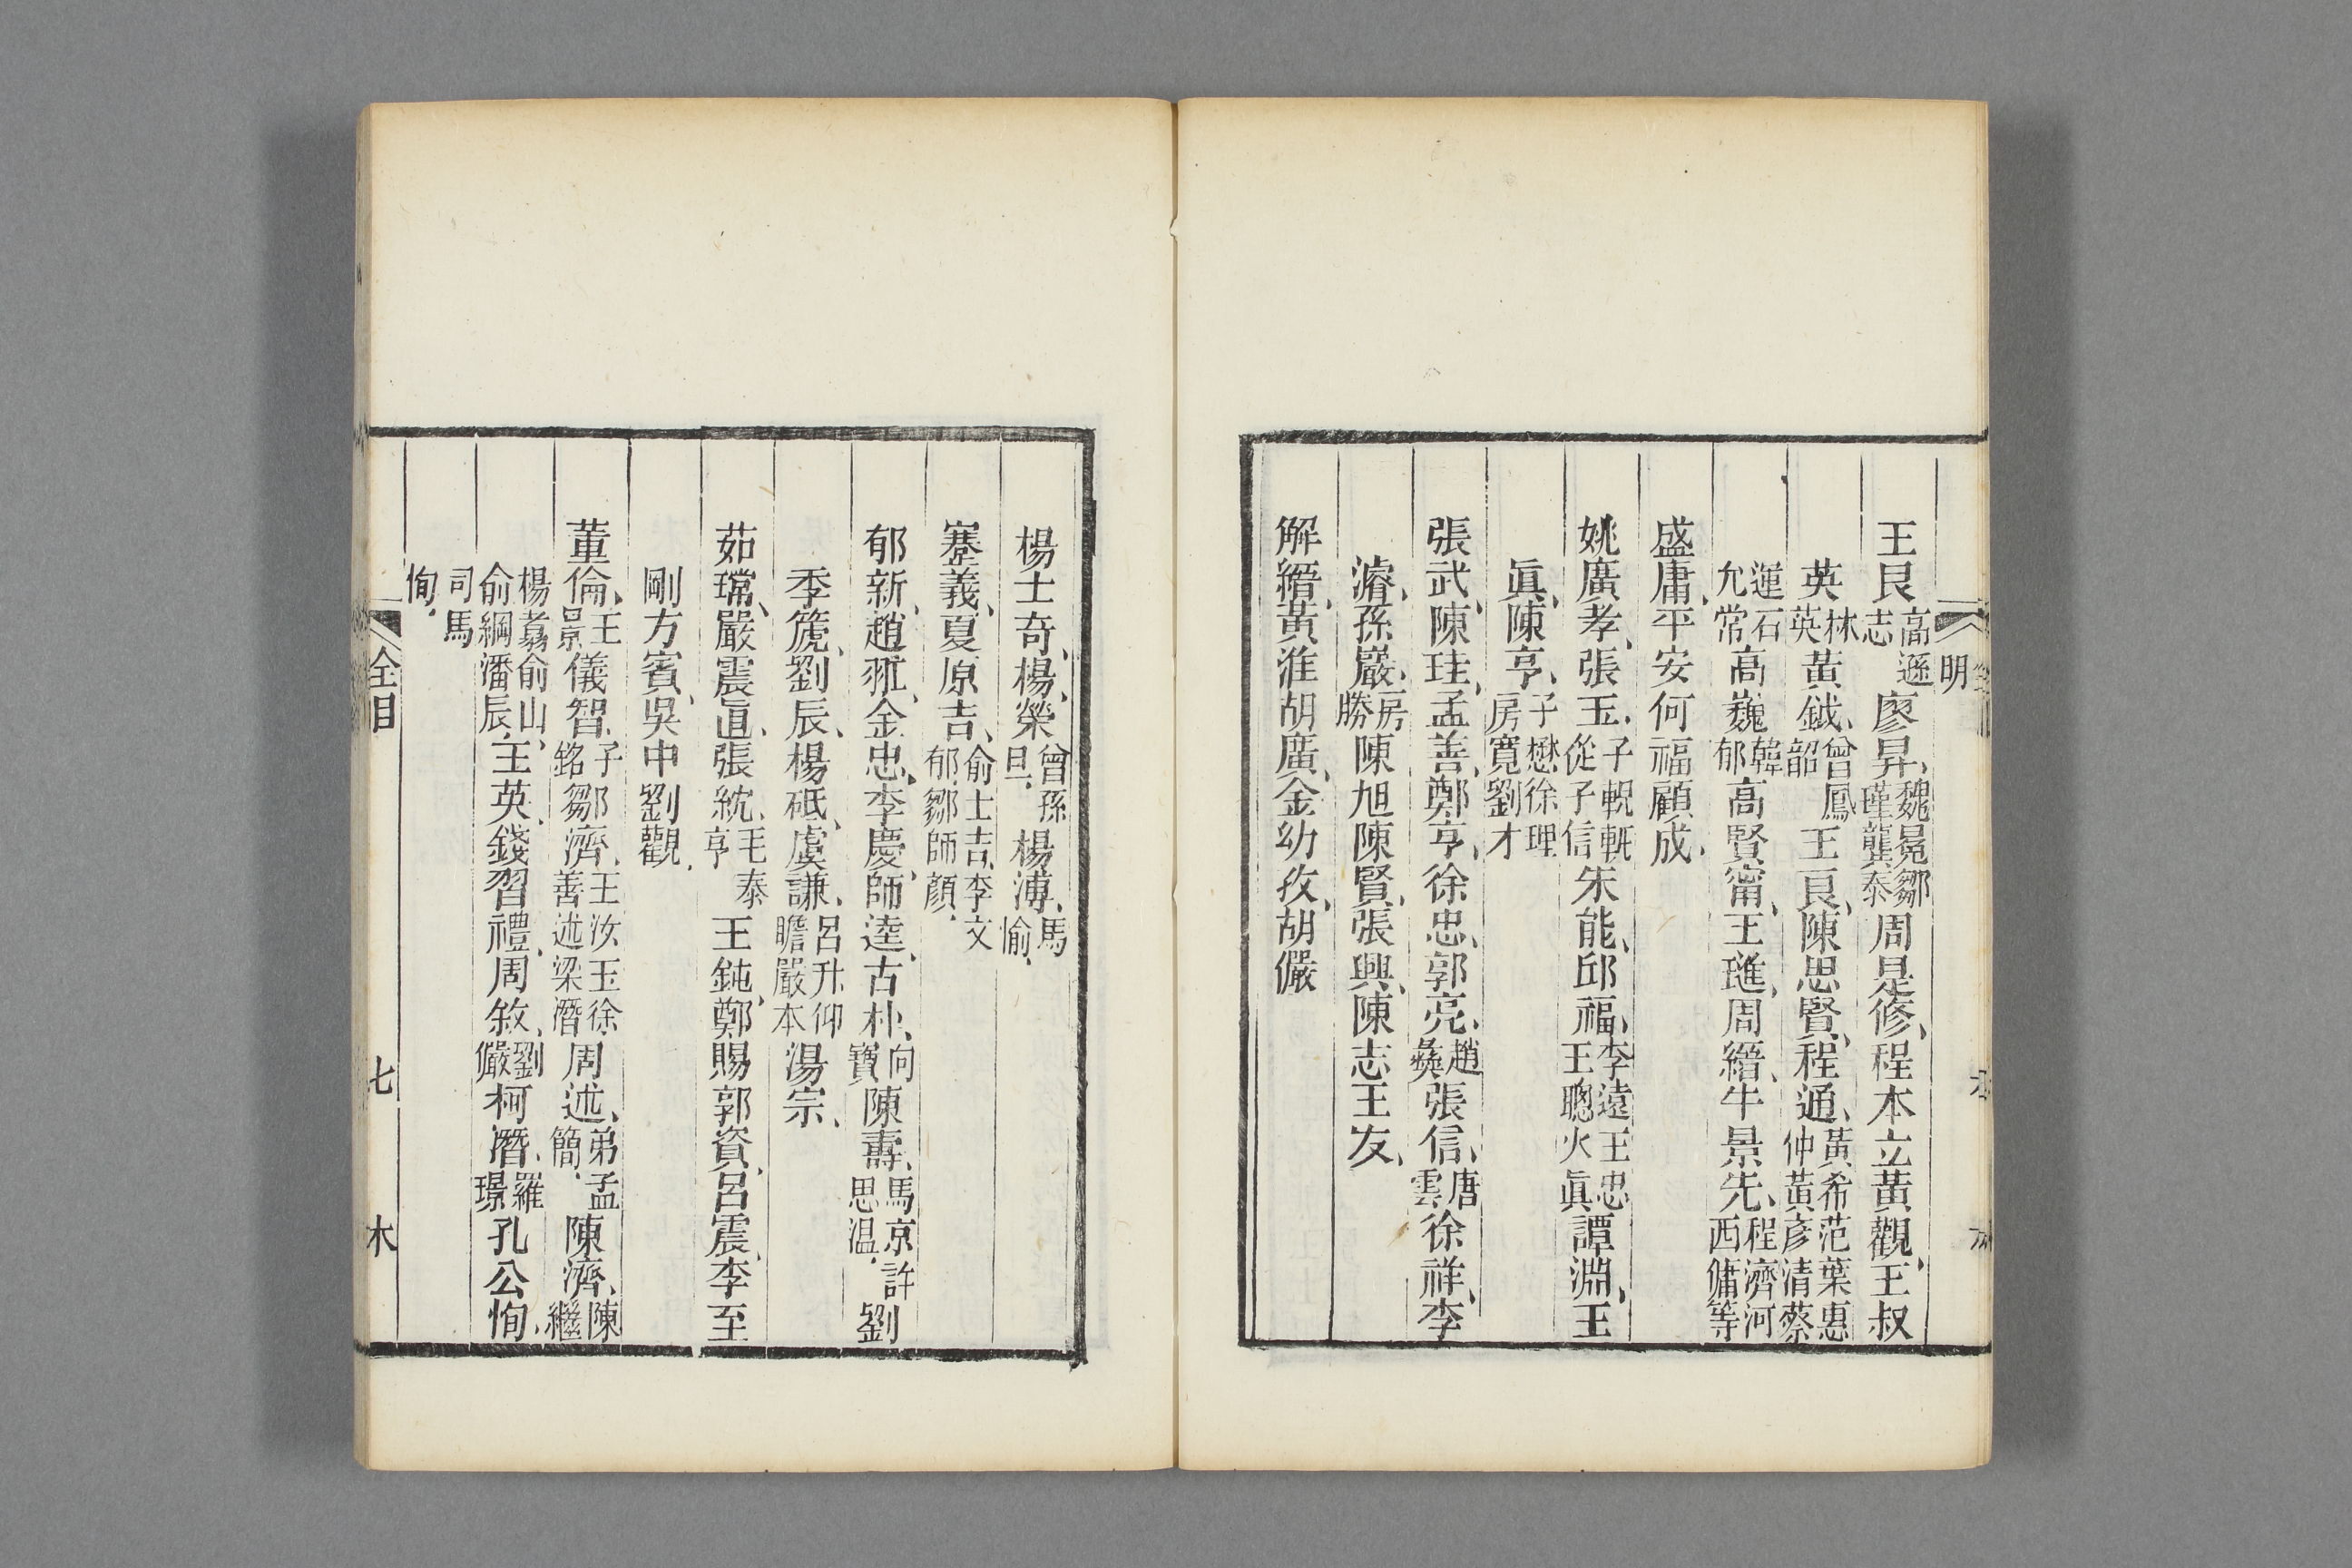 明
王艮高遜志廖昇、魏冕鄒瑾龔泰周是修、程本立黃觀、王叔
英林英黃鉞、曾鳳韶王艮、陳思賢、程通、黃希范葉惠仲黃彥清蔡
運石允常高巍韓郁高賢甯、王璡、周縉、牛景先、程濟河西傭等
盛庸、平安何福顧成、
姚廣孝、張玉、子輗軏從子信朱能、邱福、李遠王忠王聰火眞譚淵、王
眞、陳亨、子懋徐理房寬劉才
張武、陳珪、孟善、鄭亨、徐忠、郭亮、趙彝張信、唐雲徐祥、李
濬、孫巖、房勝陳旭陳賢、張興、陳志王友、
解縉、黃淮胡廣、金幼孜、胡儼
楊士奇、楊榮曾孫旦、楊溥、馬愉、
蹇義、夏原吉、俞士吉、李文郁鄒師顏、
郁新、趙羾、金忠、李慶、師逵、古朴、向寶陳壽、馬京許思温、劉
季箎、劉辰、楊砥、虞謙、呂升仰瞻嚴本湯宗、
茹瑺、嚴震直、張紞、毛泰亨王鈍、鄭賜郭資、呂震、李至
剛方賓、吳中劉觀、
董倫、王景儀智、子銘鄒濟、王汝玉徐善述梁潛周述、弟孟簡、陳濟、陳繼
楊翥俞山、俞綱潘辰、王英、錢習禮、周敘、劉儼柯潛、羅璟孔公恂、
司馬恂、
全目 七 木